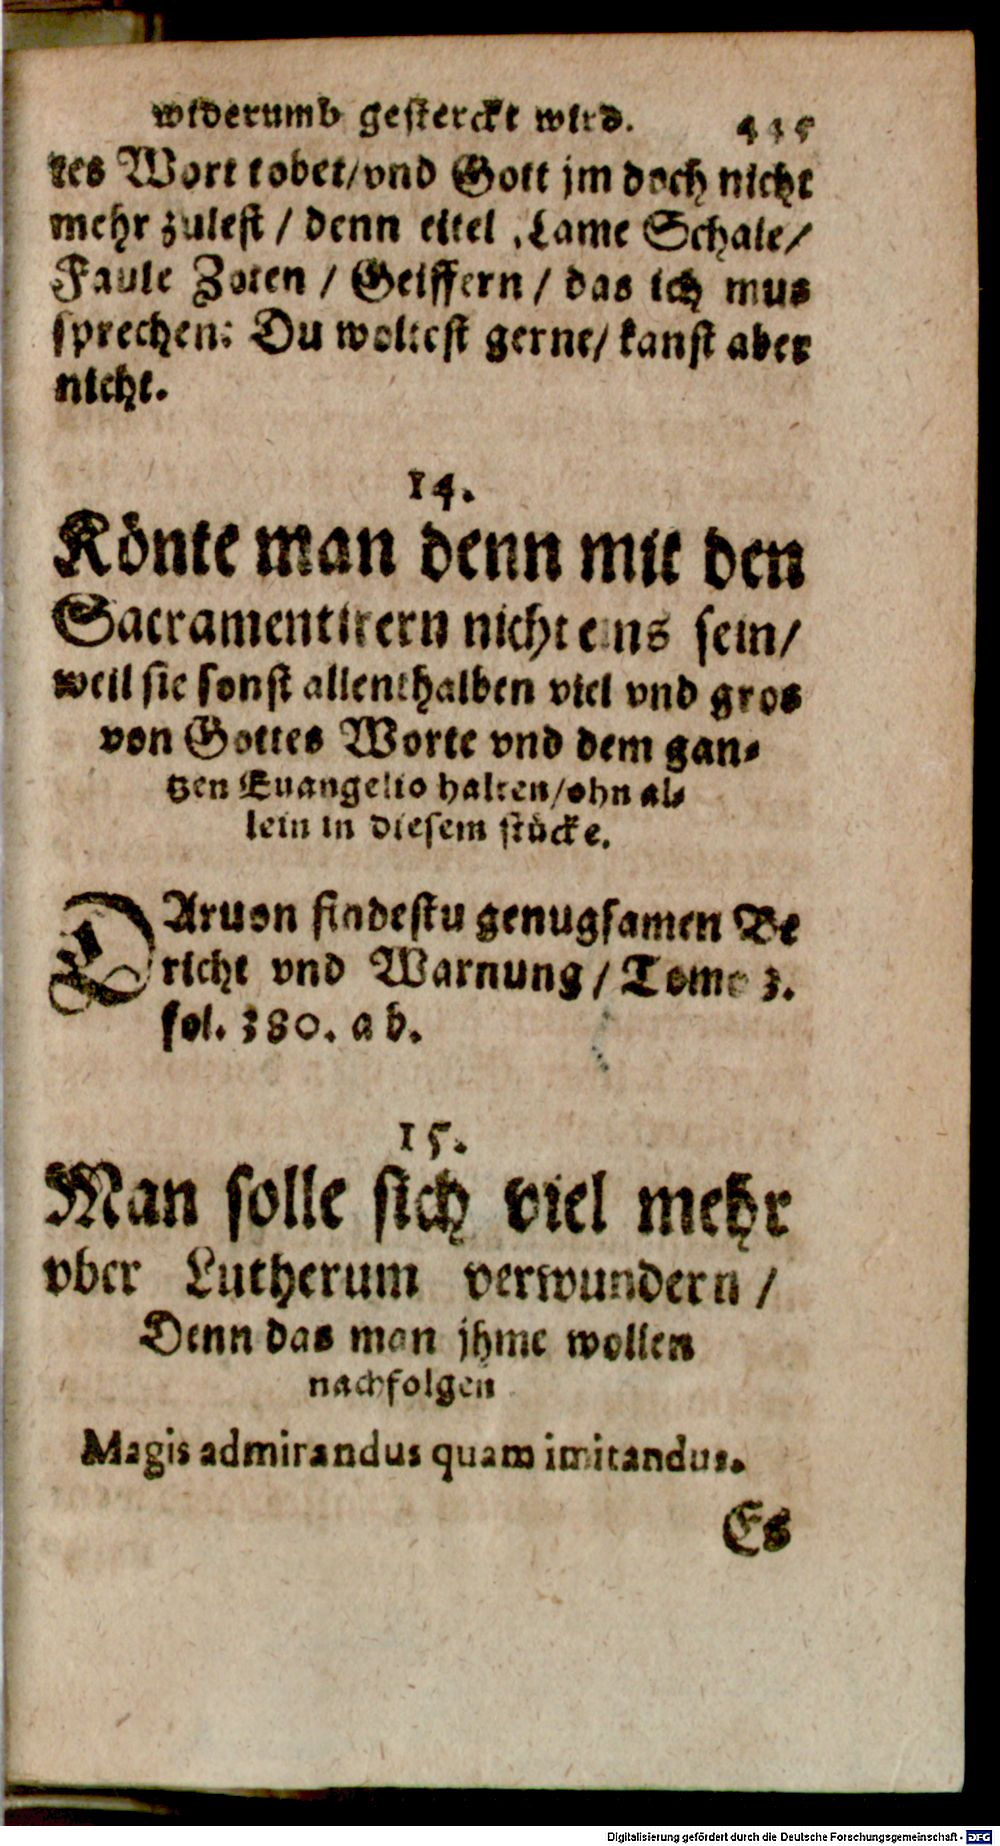 widerumb gesterckt wird. 445
tes Wort tobet/vnd Gott jm doch nicht
mehr zulest / denn eitel Lame Schale/
Faule Zoten / Geiffern / das ich mus
sprechen: Du woltest gerne/ kanst aber
nicht.
14.
Könte man denn mit den
Sacramentirern nicht eins sein/
weil sie sonst allenthalben viel vnd gros
von Gottes Worte vnd dem gan-
tzen Euangelio halten/ohn al-
lein in diesem stücke.
DAruon findestu genugsamen Be
richt vnd Warnung / Tomo 3.
fol. 380. a b.
15.
Man solle sich viel mehr
vber Lutherum verwundern /
Denn das man jhme wollen
nachfolgen
Magis admirandus quam imitandus.
Es
Digitalisierung gefördert durch die Deutsche Forschungsgemeinschaft - DFG